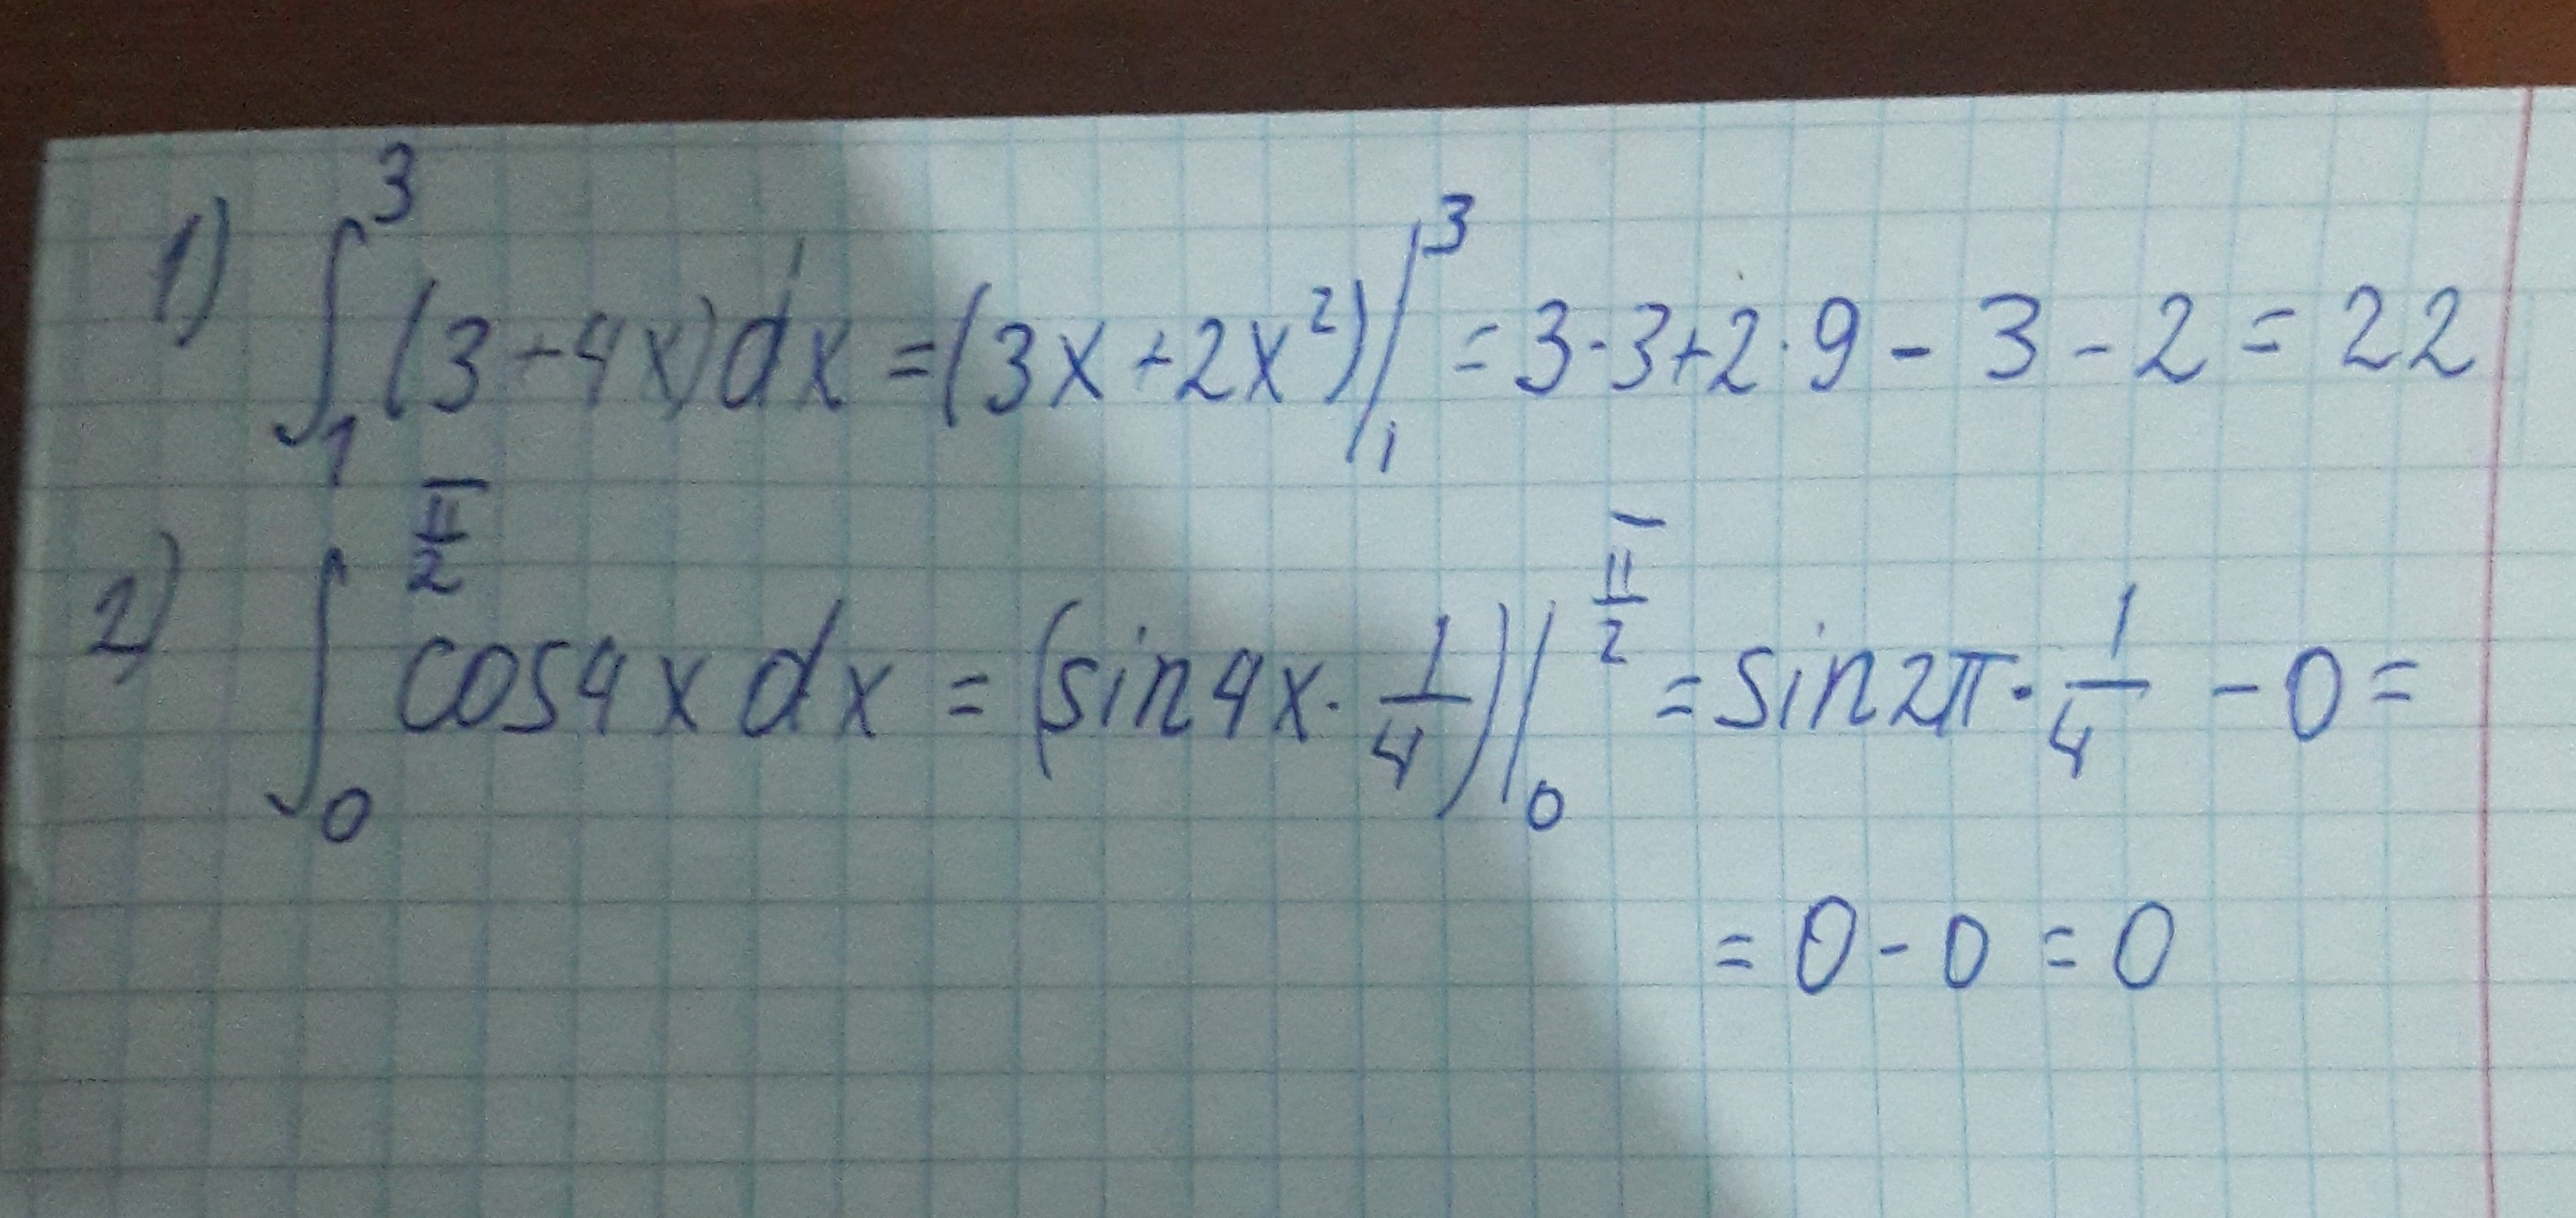 1) ∫₁³ (3+4x)dx = (3x+2x²)|₁³ = 3·3+2·9 - 3 - 2 = 22
2) ∫₀^(π/2) cos4x dx = (sin4x · 1/4)|₀^(π/2) = sin2π · 1/4 - 0 =
= 0 - 0 = 0